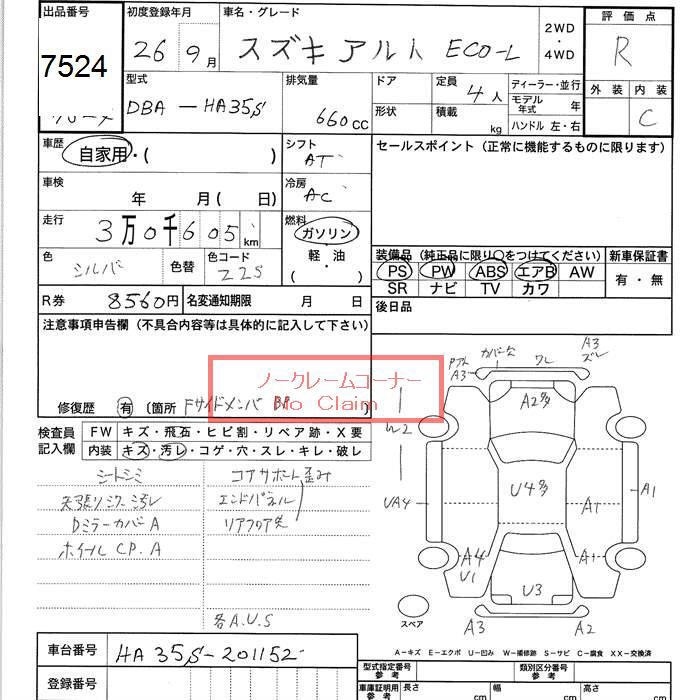 出品番号
7524
初度登録年月
26 9月
車名・グレード
スズキ アルト ECO-L
2WD
・
4WD
評価点
R
外装 内装
C
型式
DBA-HA35S
排気量
660cc
ドア
形状
定員
4人
積載
kg
ディーラー・並行
モデル年式 年
ハンドル 左・右
車歴
自家用・( )
シフト
AT
セールスポイント (正常に機能するものに限ります)
車検
年 月( 日)
冷房
AC
走行
3万0千605km
燃料
ガソリン
・
軽油
( )
色
シルバ
色替
色コード
Z2S
装備品 (純正品に限り○をつけてください)
PS PW ABS エアB AW
SR ナビ TV カワ
新車保証書
有・無
R券 8560円
名変通知期限 月 日
後日品
注意事項申告欄 (不具合内容等は具体的に記入して下さい)
ノークレームコーナー
No Claim
修復歴 有 〔箇所 Fサイドメンバ BP 〕
検査員
記入欄
FW キズ・飛石・ヒビ割・リペア跡・X要
内装 キズ・汚レ・コゲ・穴・スレ・キレ・破レ
シートシミ
天張リミラー汚レ
Dミラーカバー A
ホイールCP.A
コアサポート歪み
エンドパネル
リアフロア
各A.U.S
A3
ズレ
カバー
ワレ
A3
A2多
W2
U4多
UA4
A1
A1
A4
U1
A1
U3
スペア
A3
A2
A-キズ E-エクボ U-凹み W-補修跡 S-サビ C-腐食 XX-交換済
車台番号
HA35S-201152
登録番号
型式指定番号
参考
類別区分番号
参考
車庫証明用
参考
長さ
cm
幅
cm
高さ
cm